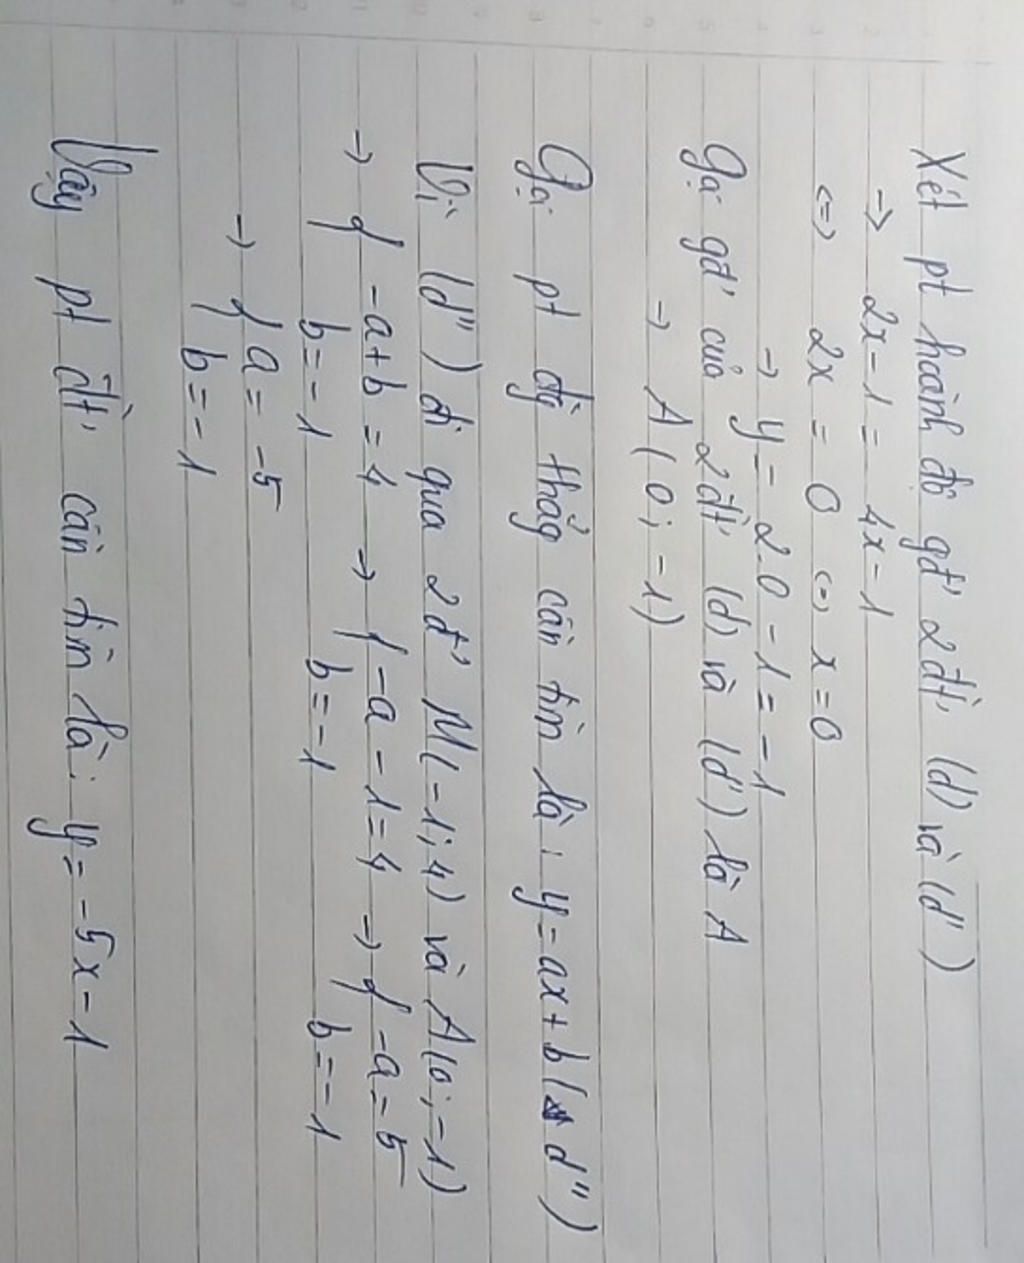 Xét pt hoành độ gđ' 2đt' (d) và (d')
→ 2x-1 = 4x-1
<=> 2x = 0 <=> x=0
→ y = 2.0 - 1 = -1
Gọi gđ' của 2đt' (d) và (d') là A
→ A(0; -1)
Gọi pt đg thẳg cần tìm là: y = ax + b (d")
Vì (d") đi qua 2đ' M(-1;4) và A(0;-1)
→ { -a+b = 4 → { -a-1 = 4 → { -a = 5
b = -1 b = -1 b = -1
→ { a = -5
b = -1
Vậy pt đt' cần tìm là: y = -5x-1